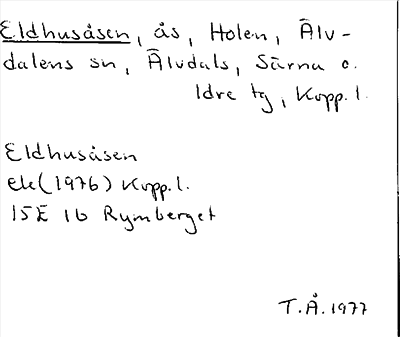 Eldhusåsen, ås, Holen, Älv-
dalens sn, Älvdals, Särna o.
Idre tg, Kopp.l.
Eldhusåsen
ek(1976) Kopp.l.
15E 1b Rymberget
T.Å.1977